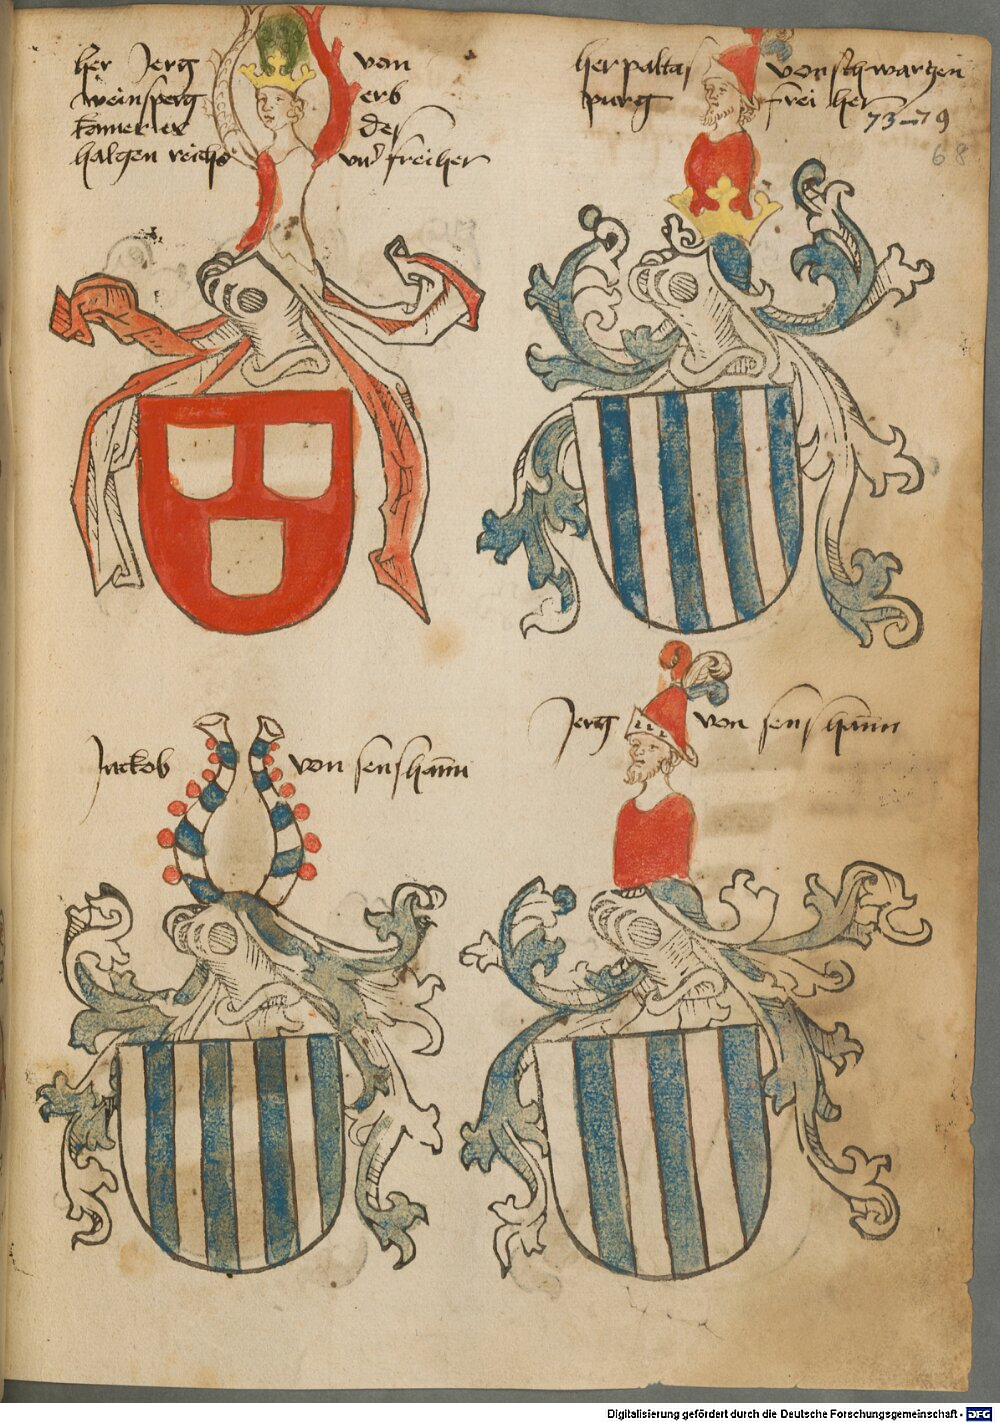 her Jerg von
weinsperg erb
kamerer des
halgen reichs vnd freiher
her paltas von schwartzen
purg frei her
73–79
68
Jackob von senshaim
Jerg von senshaim
Digitalisierung gefördert durch die Deutsche Forschungsgemeinschaft - DFG